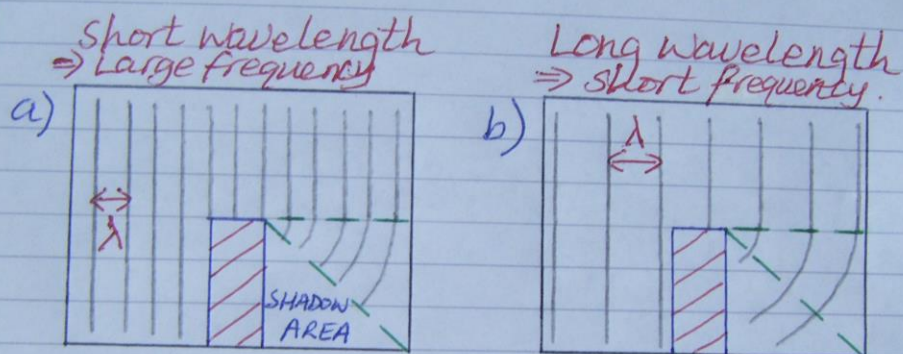 Short wavelength
⇒ Large frequency
a)
λ
SHADOW
AREA
Long wavelength
⇒ short frequency.
b)
λ